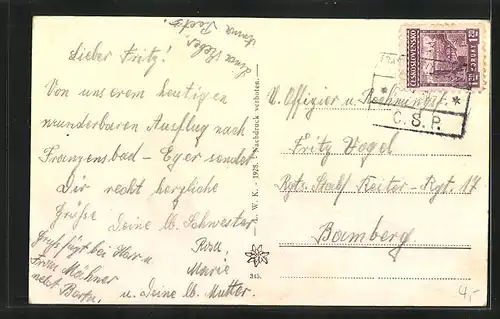 Lieber Fritz!
Von unserem heutigen
wunderbaren Ausflug nach
Franzensbad - Eger sendet
Dir recht herzliche
Grüße Deine lb. Schwester
Marie
u. Deine lb. Mutter.
Gruß fügt bei Herr u
Frau
nebst
Anna
A. W. K. - 1928. Nachdruck verboten.
345.
ČESKOSLOVENSKO
C. S. P.
U. Offizier u.
Fritz Vogel
Rgts. Stab Reiter-Rgt. 17
Bamberg
4,-